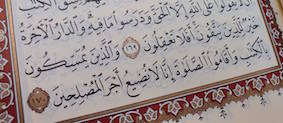 أَن لَّا يَقُولُوا۟ عَلَى ٱللَّهِ إِلَّا ٱلْحَقَّ وَدَرَسُوا۟ مَا فِيهِ وَٱلدَّارُ ٱلْـَٔاخِرَةُ
خَيْرٌ لِّلَّذِينَ يَتَّقُونَ أَفَلَا تَعْقِلُونَ ١٦٩ وَٱلَّذِينَ يُمَسِّكُونَ
بِٱلْكِتَـٰبِ وَأَقَامُوا۟ ٱلصَّلَوٰةَ إِنَّا لَا نُضِيعُ أَجْرَ ٱلْمُصْلِحِينَ ١٧٠